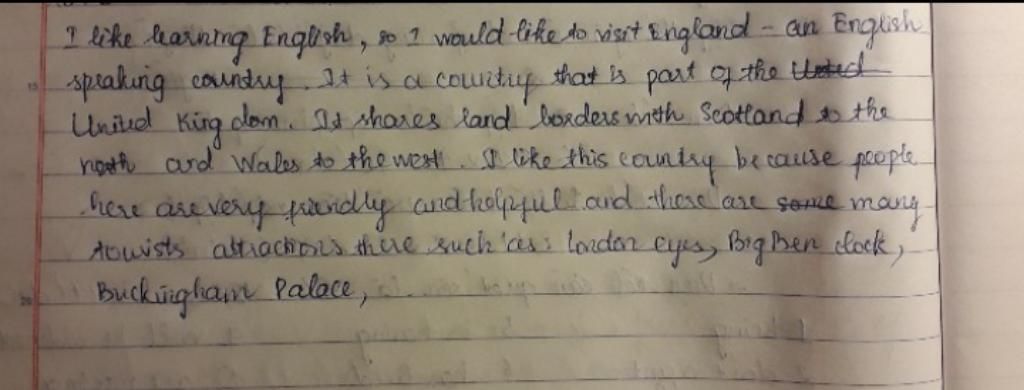 I like learning English, so I would like to visit England - an English
speaking country. It is a country that is part of the United
United Kingdom. It shares land borders with Scotland to the
north and Wales to the west. I like this country because people
here are very friendly and helpful and there are some many
tourists attractions there such as: london eyes, Big Ben clock,
Buckingham Palace,